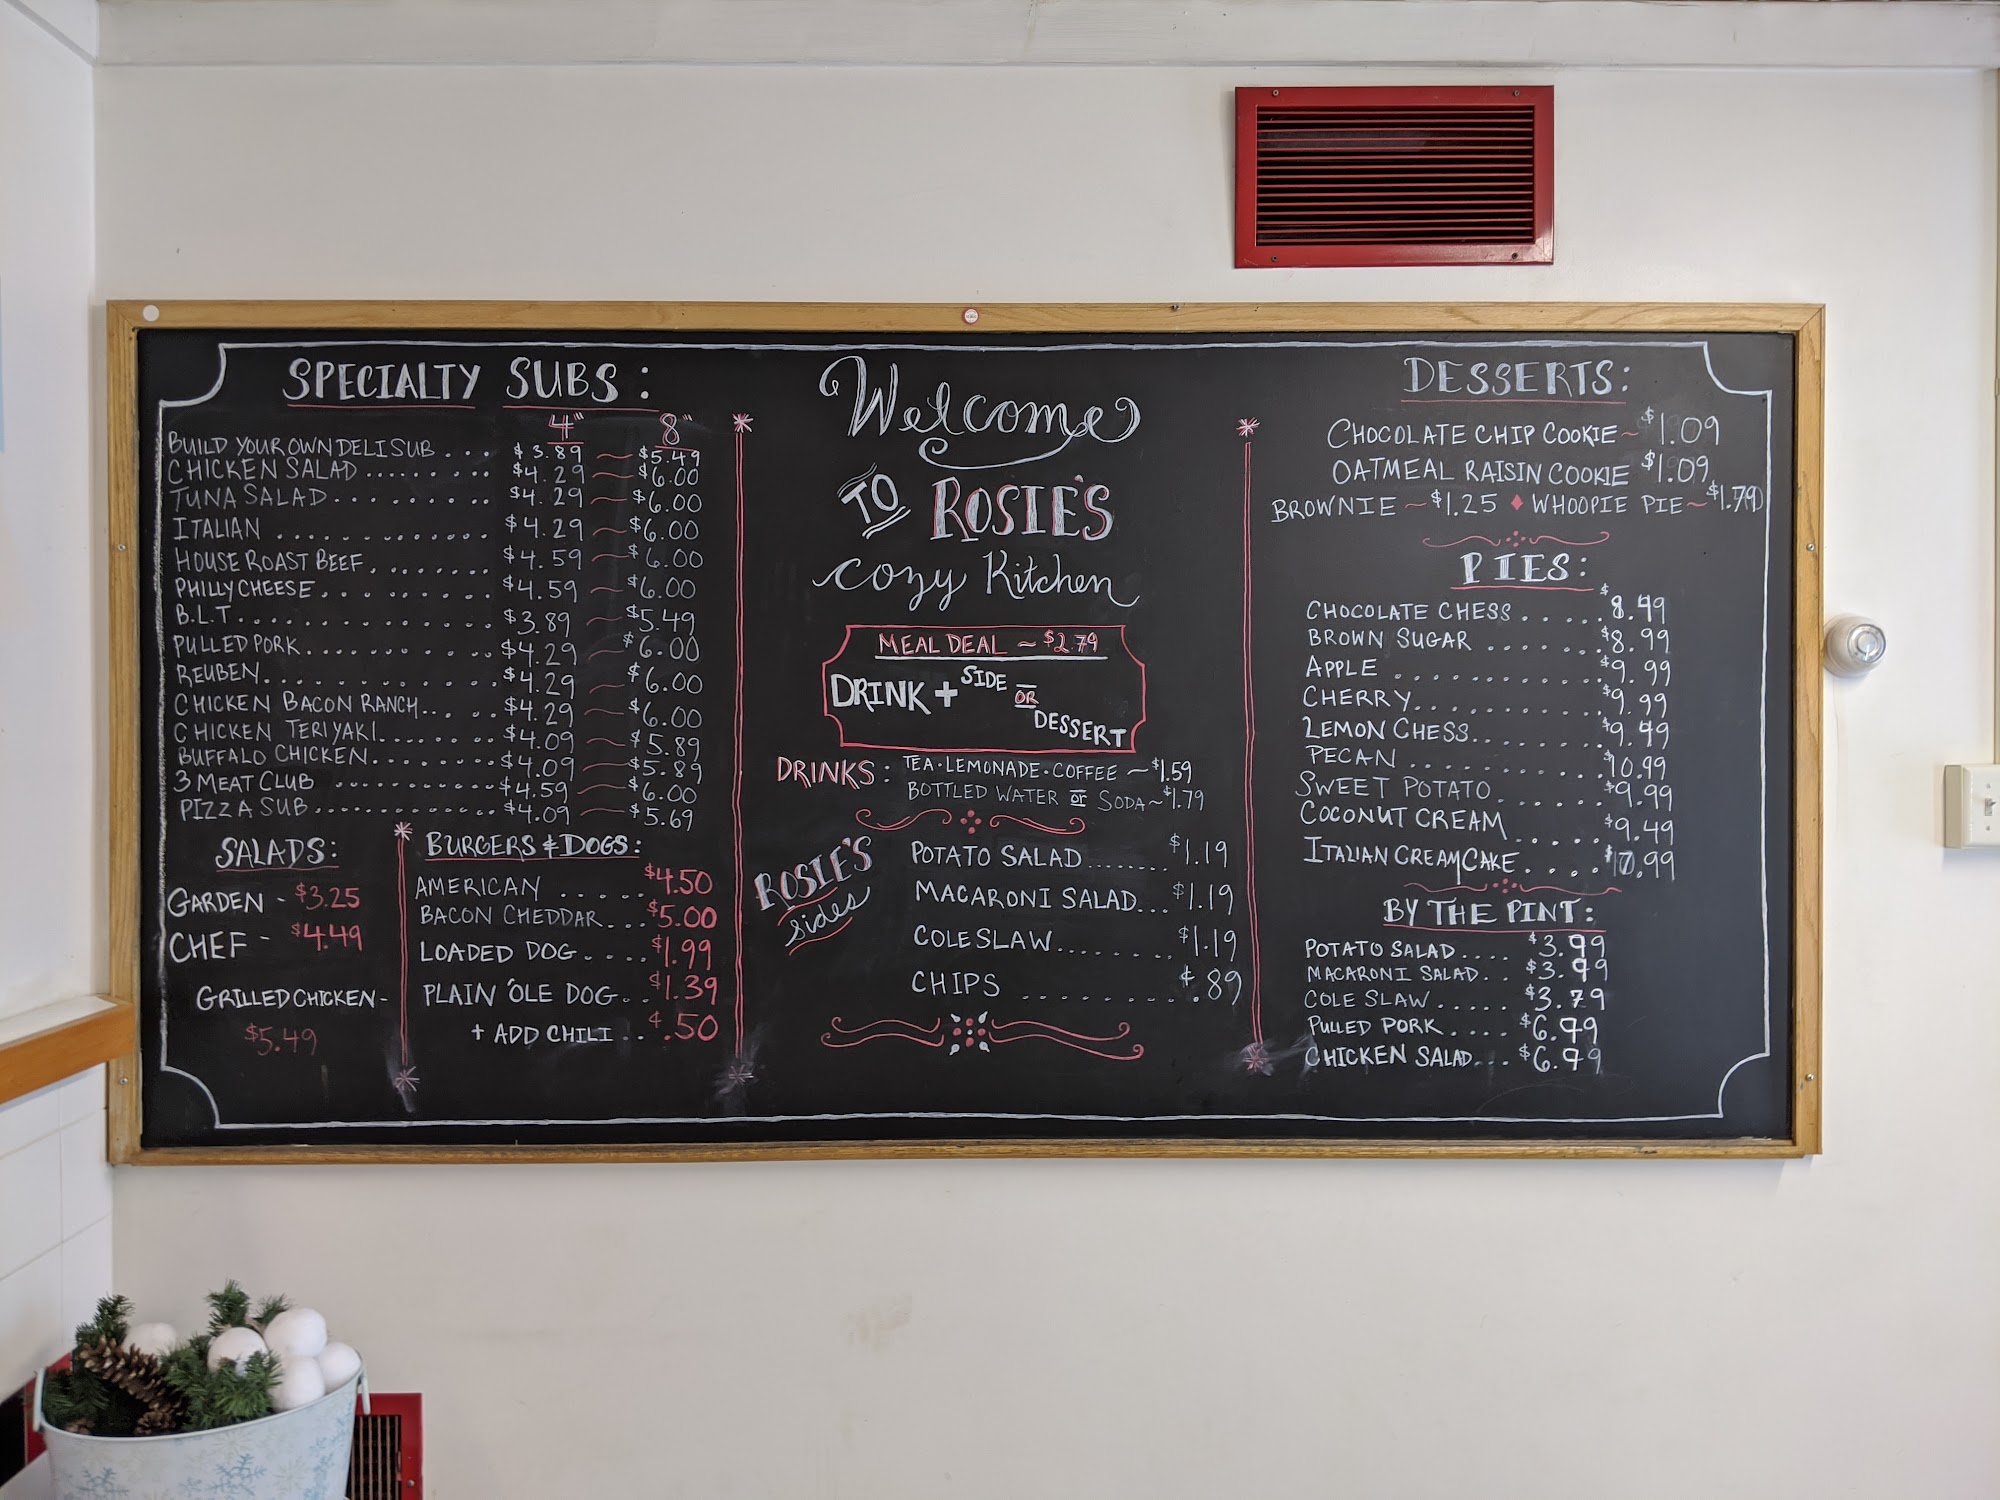 SPECIALTY SUBS:
4" 8"
BUILD YOUR OWN DELI SUB ... $3.89 ~ $5.49
CHICKEN SALAD ....... $4.29 ~ $6.00
TUNA SALAD ......... $4.29 ~ $6.00
ITALIAN ............. $4.29 ~ $6.00
HOUSE ROAST BEEF ....... $4.59 ~ $6.00
PHILLY CHEESE .......... $4.59 ~ $6.00
B.L.T. .............. $3.89 ~ $5.49
PULLED PORK ........... $4.29 ~ $6.00
REUBEN .............. $4.29 ~ $6.00
CHICKEN BACON RANCH ..... $4.29 ~ $6.00
CHICKEN TERIYAKI ........ $4.09 ~ $5.89
BUFFALO CHICKEN ......... $4.09 ~ $5.89
3 MEAT CLUB ............ $4.59 ~ $6.00
PIZZA SUB ............. $4.09 ~ $5.69
SALADS:
GARDEN - $3.25
CHEF - $4.49
GRILLED CHICKEN -
$5.49
BURGERS & DOGS:
AMERICAN ..... $4.50
BACON CHEDDAR ... $5.00
LOADED DOG .... $1.99
PLAIN 'OLE DOG .. $1.39
+ ADD CHILI .. ¢.50
Welcome
TO ROSIE'S
cozy Kitchen
MEAL DEAL ~ $2.79
DRINK + SIDE OR DESSERT
DRINKS: TEA · LEMONADE · COFFEE ~ $1.59
BOTTLED WATER or SODA ~ $1.79
ROSIE'S
sides
POTATO SALAD ...... $1.19
MACARONI SALAD ... $1.19
COLE SLAW ........ $1.19
CHIPS ......... ¢.89
DESSERTS:
CHOCOLATE CHIP COOKIE ~ $1.09
OATMEAL RAISIN COOKIE $1.09
BROWNIE ~ $1.25 ♦ WHOOPIE PIE ~ $1.79
PIES:
CHOCOLATE CHESS ..... $8.49
BROWN SUGAR ....... $8.99
APPLE ............ $9.99
CHERRY ........... $9.99
LEMON CHESS ........ $9.49
PECAN ............ $10.99
SWEET POTATO ...... $9.99
COCONUT CREAM ..... $9.49
ITALIAN CREAM CAKE .... $10.99
BY THE PINT:
POTATO SALAD .... $3.99
MACARONI SALAD .. $3.99
COLE SLAW ..... $3.79
PULLED PORK .... $6.99
CHICKEN SALAD ... $6.99